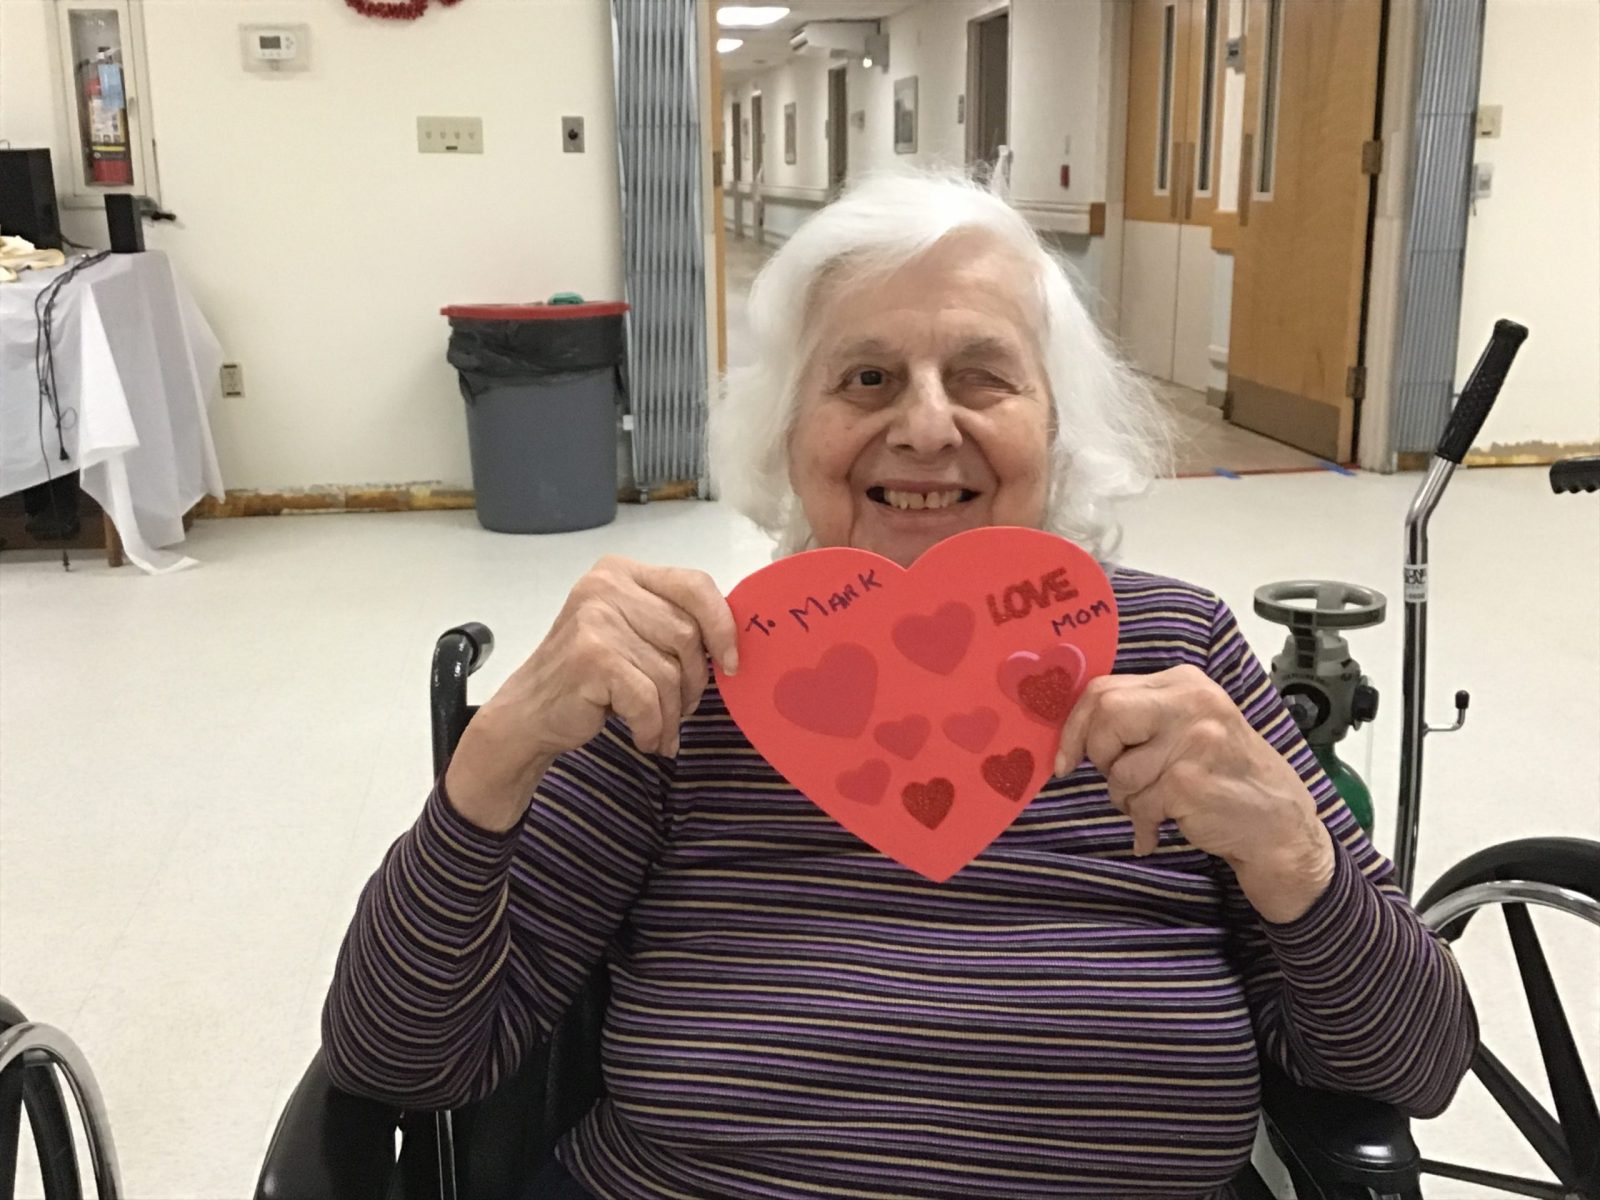 To MARK
LOVE
MOM